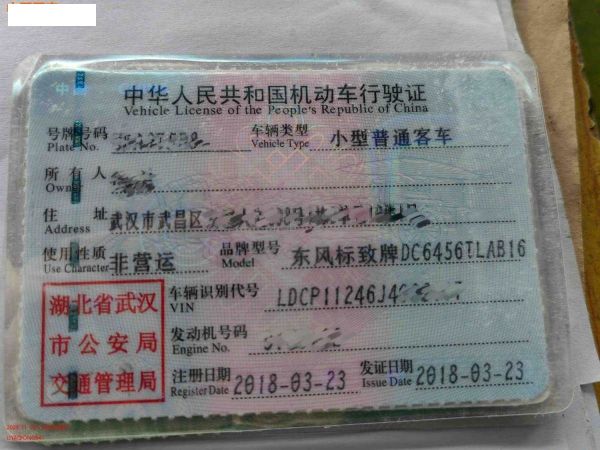 中华人民共和国机动车行驶证
Vehicle License of the People's Republic of China
号牌号码 Plate No. 车辆类型 Vehicle Type 小型普通客车
所有人 Owner
住址 Address 武汉市武昌区
使用性质 Use Character 非营运 品牌型号 Model 东风标致牌DC6456TLAB16
湖北省武汉
市公安局
交通管理局
车辆识别代号 VIN LDCP11246J4
发动机号码 Engine No.
注册日期 Register Date 2018-03-23 发证日期 Issue Date 2018-03-23